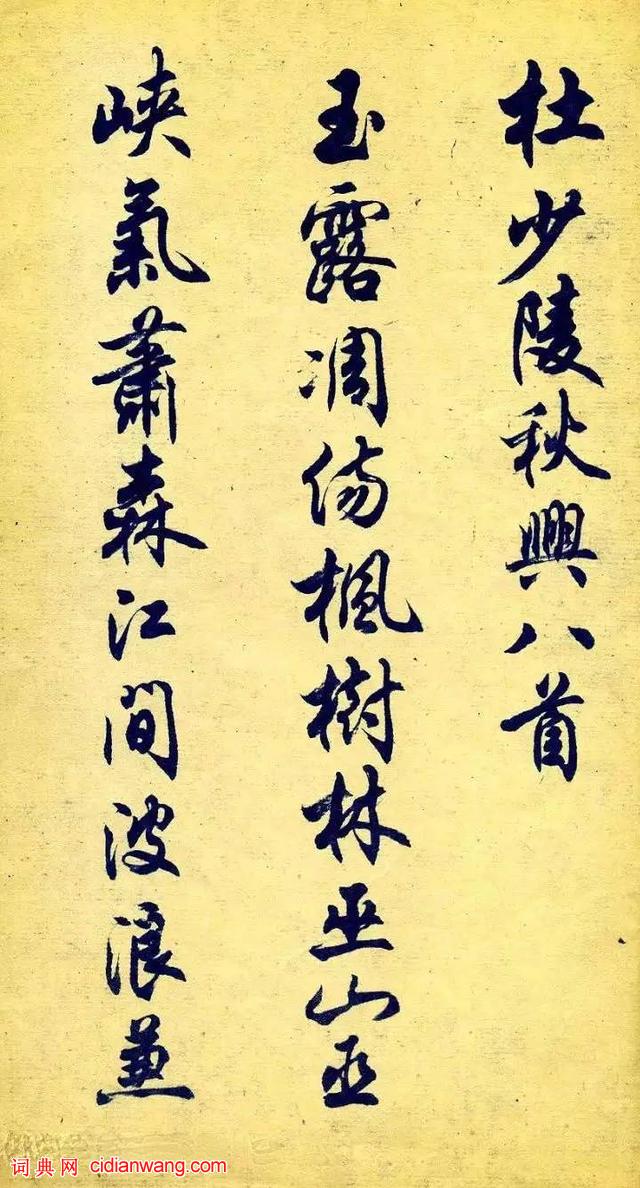 杜少陵秋興八首
玉露凋傷楓樹林巫山巫
峽氣蕭森江間波浪兼
词典网 cidianwang.com